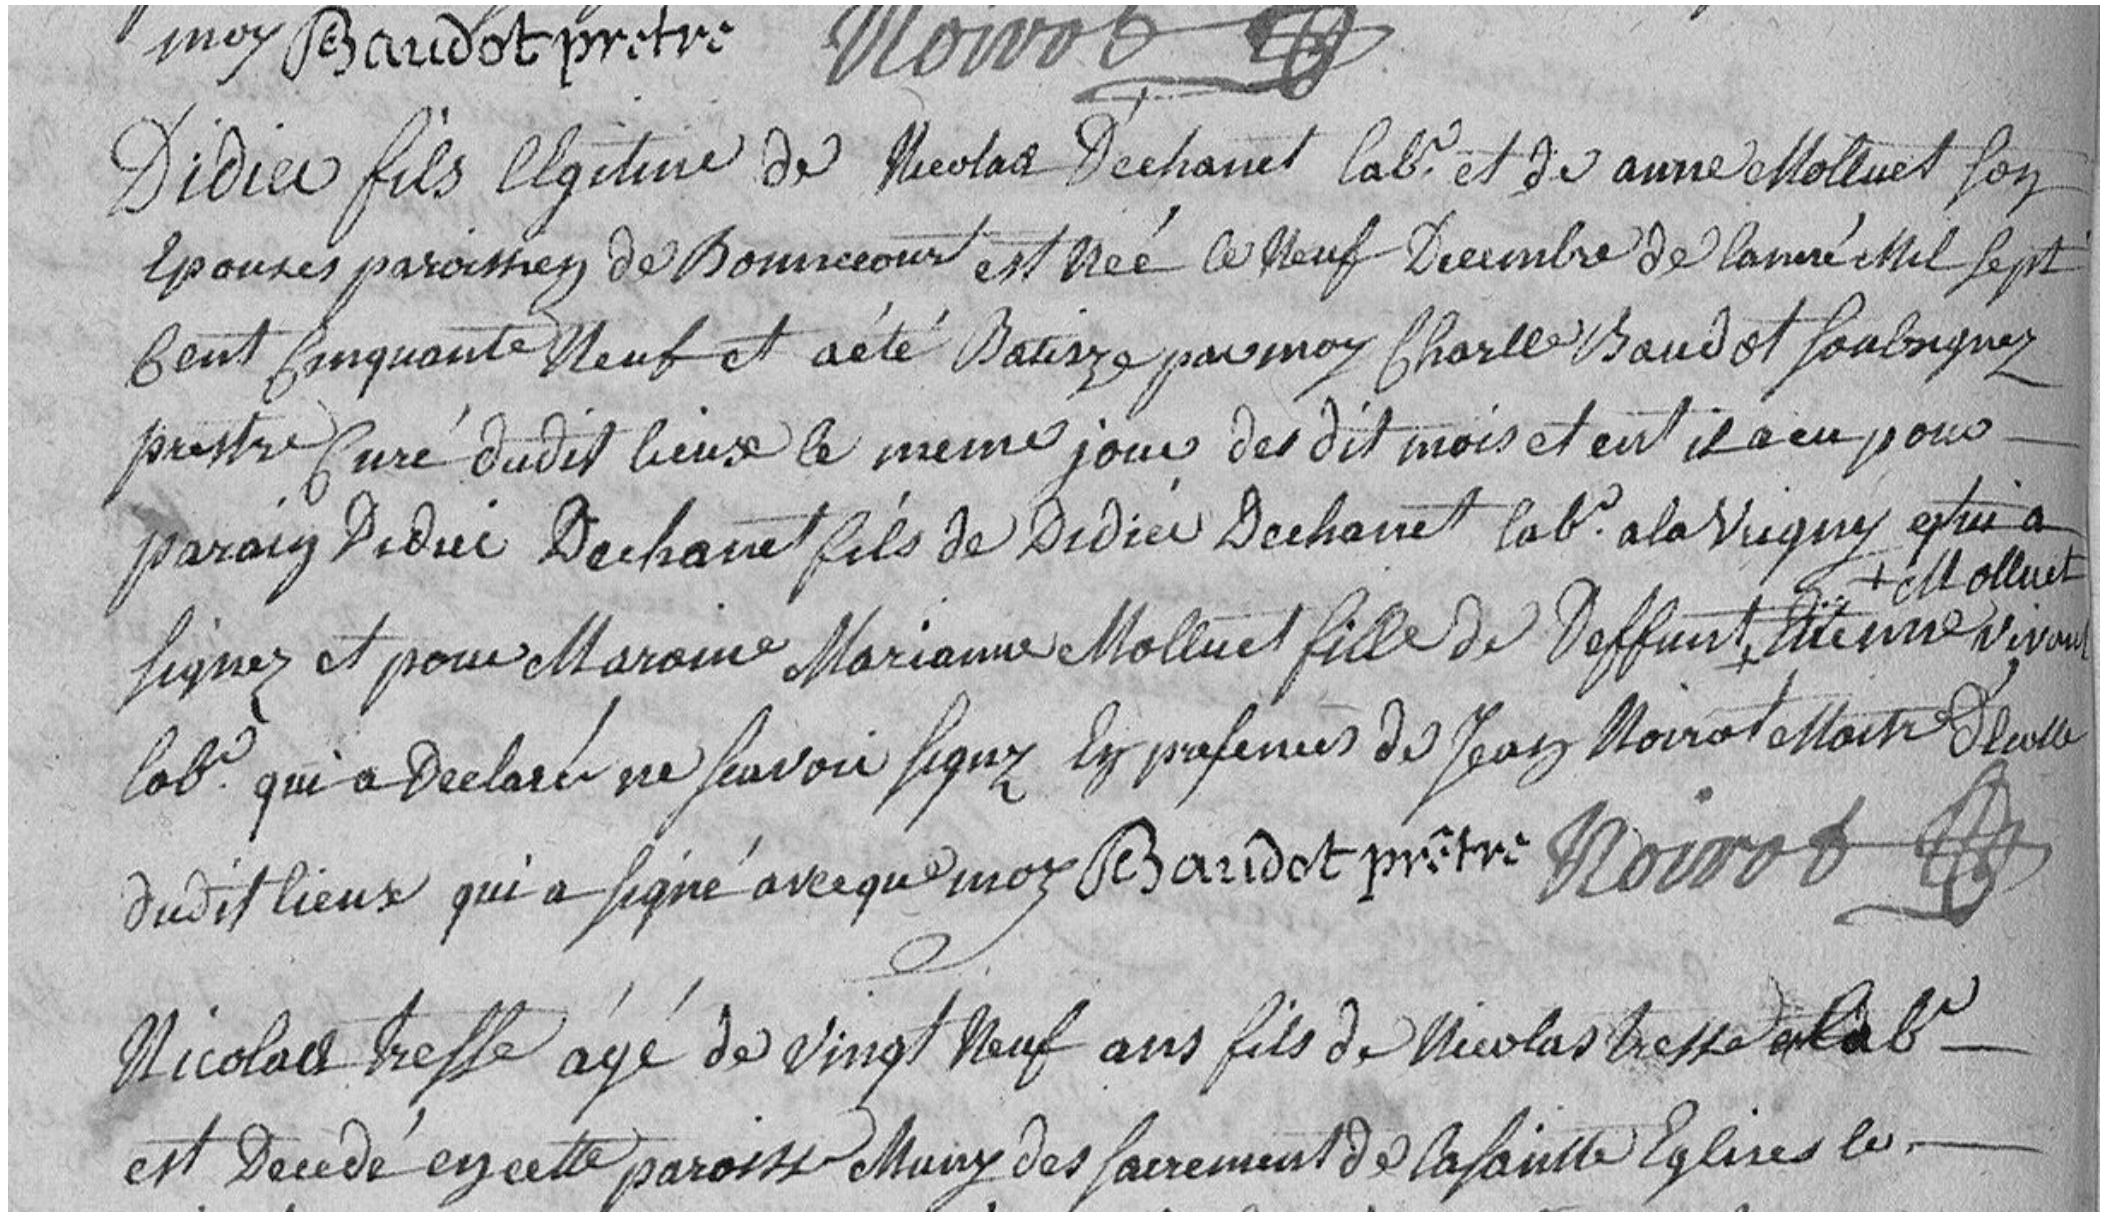 moy Baudot prêtre Noirot
Didier fils Legitime de Nicolas Déchanet lab.r et de anne Molluet son
Epouses paroissien de Bonnecourt est Neé le Neuf Decembre de lanneé Mil sept
Cent Cinquante Neuf et a été Batisze par moy Charlle Baudot soubsignez
prestre Curé dudit lieux le meme jour des dit mois et ent il a eu pour
parain Didier Dechanet fils de Didier Dechanet lab.r a la Vrigny qui a
+ Molluet
signez et pour Maraine Marianne Molluet fille de Deffunt + Etienne vivant
lab.r qui a Declaré ne scavoir signz En presences de Jean Noirot Maitre D'Ecolle
dudit lieux qui a signé avecque moy Baudot prêtre Noirot
Nicolas tresse âgé de vingt Neuf ans fils de Nicolas tresse lab.r
est Decedé en cette paroisse Muny des sacrement de la sainte Eglises le